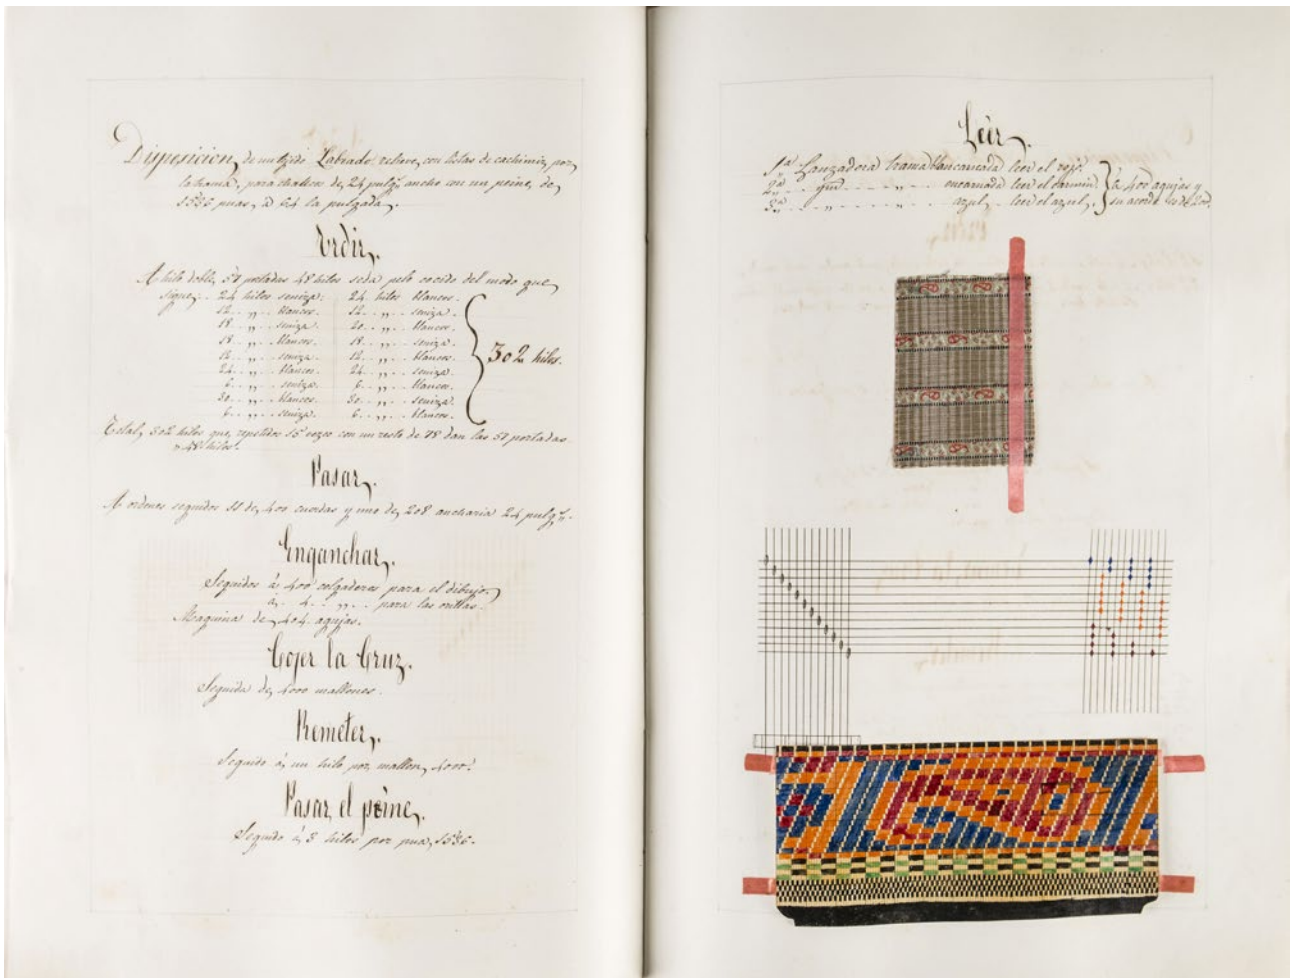 Disposicion, de un tejido Labrado relieve, con listas de cachimir, por
la trama, para chalecos de, 24 pulgs ancho con un peine, de
1536 puas, à 64 la pulgada.
Urdir.
A hilo doble, 57 portadas 48 hilos seda pelo cocido del modo que
sigue: 24 hilos seniza. 24 hilos blancos.
12 .. ,, .. blancos. 12 .. ,, .. seniza.
18 .. ,, .. seniza. 20 .. ,, .. blancos.
18 .. ,, .. blancos. 18 .. ,, .. seniza.
12 .. ,, .. seniza. 12 .. ,, .. blancos.
24 .. ,, .. blancos. 24 .. ,, .. seniza.
6 .. ,, .. seniza. 6 .. ,, .. blancos.
30 .. ,, .. blancos. 30 .. ,, .. seniza.
6 .. ,, .. seniza. 6 .. ,, .. blancos.
302 hilos.
Total, 302 hilos que, repetidos 15 vezes con un resto de 78 dan las 57 portadas
y 48 hilos.
Pasar.
A ordenes seguidos 11 de, 400 cuerdas y uno de, 208 ancharia 24 pulgs.
Enganchar.
Seguidos à 400 colgaderas para el dibujo.
à .. 4 .. ,, .. para las orillas.
Maquina de, 404 agujas.
Cojer la Cruz.
Seguida de, 4000 mallones.
Remeter.
Seguido à, un hilo por, mallon, 4000.
Pasar, el peine.
Seguido à, 3 hilos por pua, 1536.
Leer.
1ª Lanzadera trama blanca leer el rojo.
2ª encarnada leer el carmin.
3ª ,, azul, leer el azul.
à 400 agujas y
su acorde es de 200.